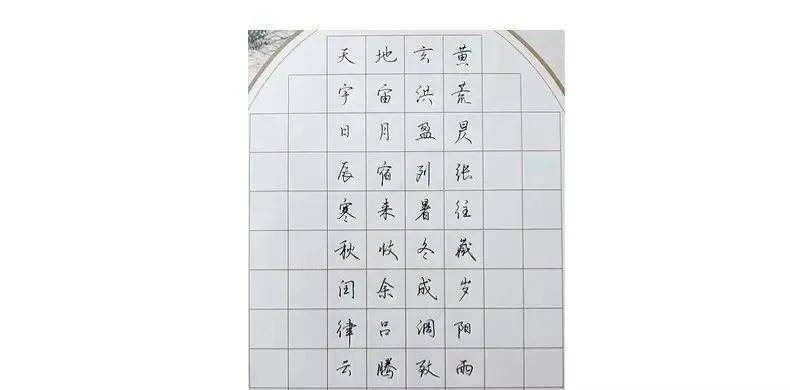 天地玄黄
宇宙洪荒
日月盈昃
辰宿列张
寒来暑往
秋收冬藏
闰余成岁
律吕调阳
云腾致雨